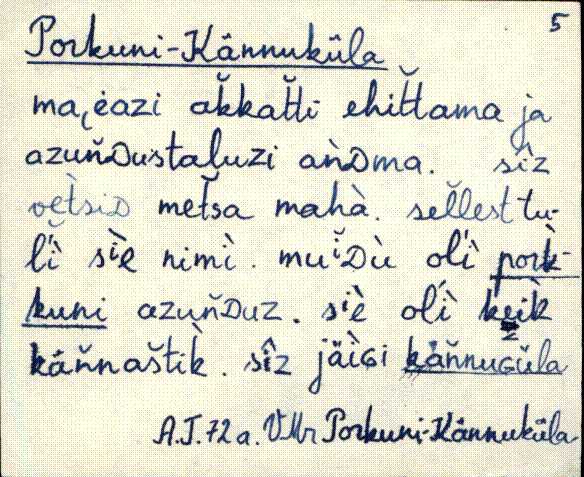 5
Porkuni-Kännuküla
ma,eazi ak̆kat̆ti ehit̆tama ja
azuňDustaluzi aǹDma. sîz
vet̀siD met̆sa mahà. sel̆lest tu-
l̆ĭì siè nimì. muĭDù olì pork̀-
kuni azuňDuz. siè olì keik̀
käňnaštik̀. sîz jäìGi käňnuGüla
A.T. 72 a. VMr Porkuni-Kännuküla